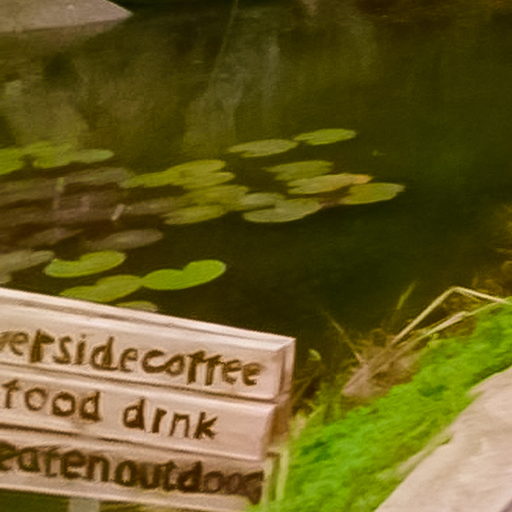 ersidecoffee
food drnk
eatenoutdoo